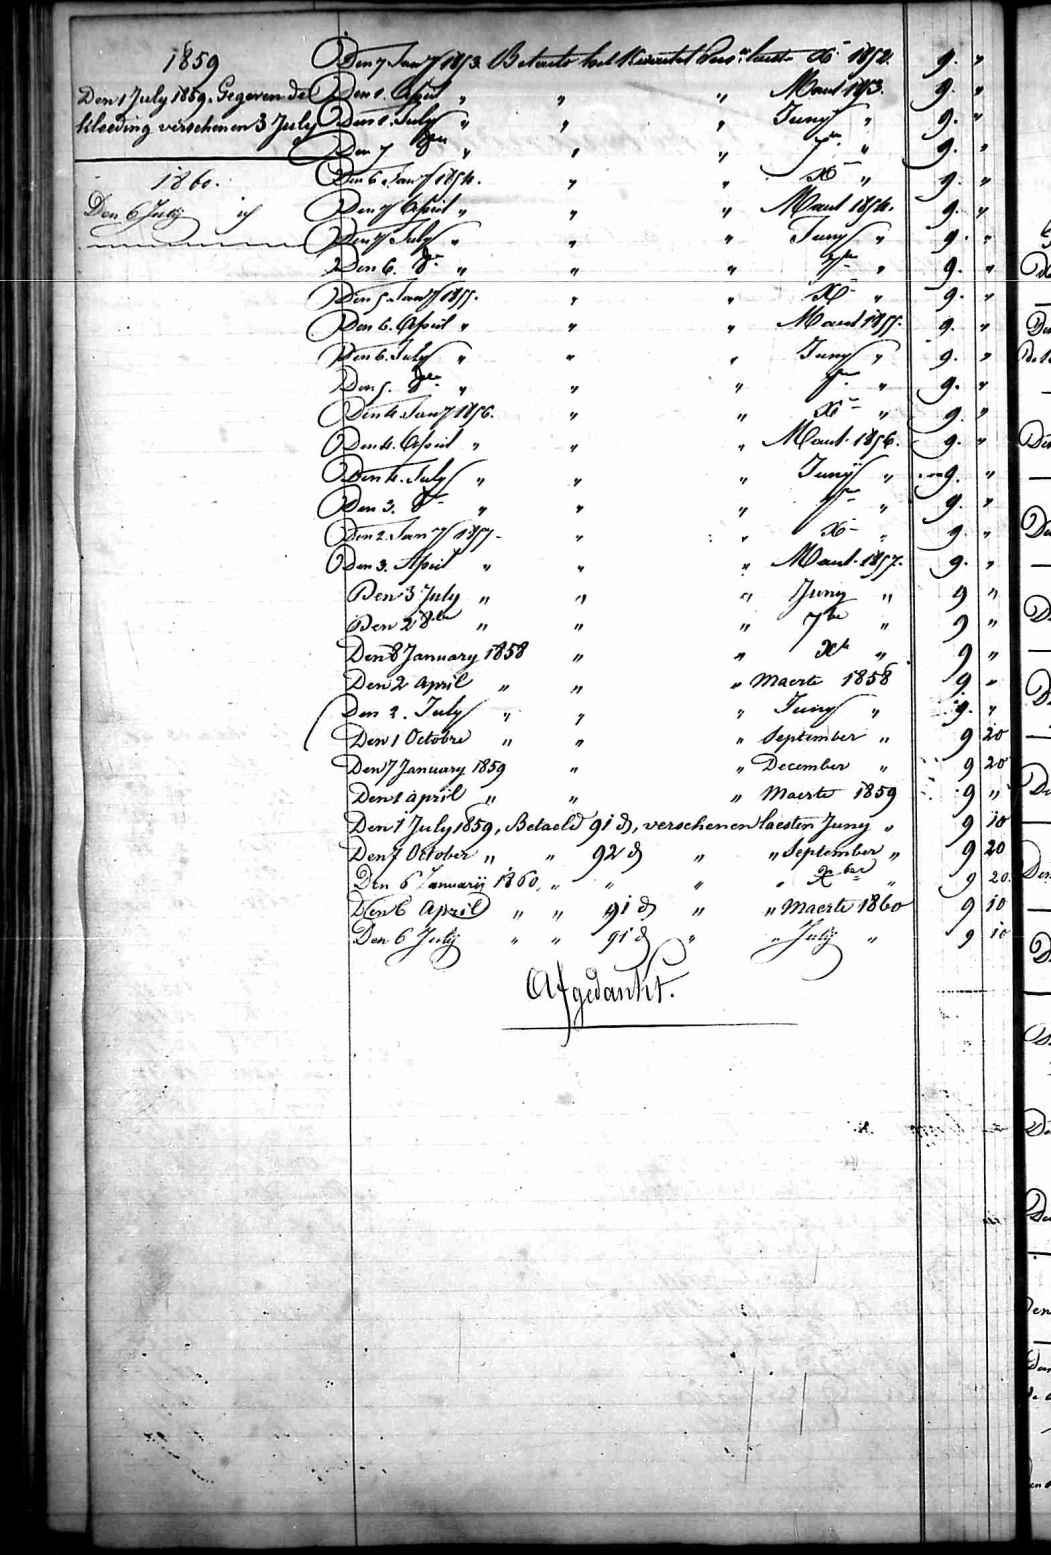 1859
Den 1 July 1859. Gegeven de
kleeding verschenen 3 July
1860.
Den 6 July id
Den 7 Jany 1853. Betaelt het Kwartal laeste X 1852. 9. "
Den 1. April " " " Maert 1853. 9. "
Den 1. July " " " Juny " 9. "
Den 7 8bre " " " 7bre " 9. "
Den 6. Jany 1854. " " X " 9. "
Den 7 April " " " Maert 1854. 9. "
Den 7 July " " " Juny " 9. "
Den 6. 8re " " " 7re " 9. "
Den 5. Jany 1855. " " X " 9. "
Den 6. April " " " Maert 1855. 9. "
Den 6. July " " " Juny " 9. "
Den 5. 8re " " " 7re " 9. "
Den 4. Jany 1856. " " X " 9. "
Den 4. April " " " Maert 1856. 9. "
Den 4. July " " " Juny " 9. "
Den 3. 8re " " " 7re " 9. "
Den 2. Jany 1857. " " X " 9. "
Den 3. April " " " Maert 1857. 9. "
Den 3 July " " " Juny " 9 "
Den 2 8bre " " " 7bre " 9 "
Den 8 January 1858 " " Xbre " 9 "
Den 2 April " " " Maerte 1858 9. "
Den 2. July " " " Juny " 9. "
Den 1 Octobre " " " September " 9 20
Den 7 January 1859 " " December " 9 20
Den 1 april " " " Maerte 1859 9 "
Den 1 July 1859, Betaeld 91 d, verschenen laesten Juny " 9 10
Den 7 October " " 92 d " " September " 9 20
Den 6 Januarij 1860, " " " " Xbre " 9 20.
Den 6 April " " 91 d " " Maerte 1860 9 10
Den 6 July " " 91 d " " July " 9 10
Afgedankt.